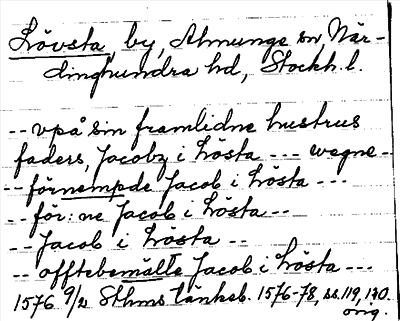 Lövsta, by, Almunge sn, När-
dinghundra hd, Stockh. l.
-- vpå sin framlidne hustrus
faders, Jacobz i Lösta --- wegne --
-- förnempde Jacob i Lösta ---
-- för:ne Jacob i Lösta --
-- Jacob i Lösta --
-- offtebemälte Jacob i Lösta ---
1576 9/2 Sthms tänkeb. 1576-78, ss. 119, 170.
orig.